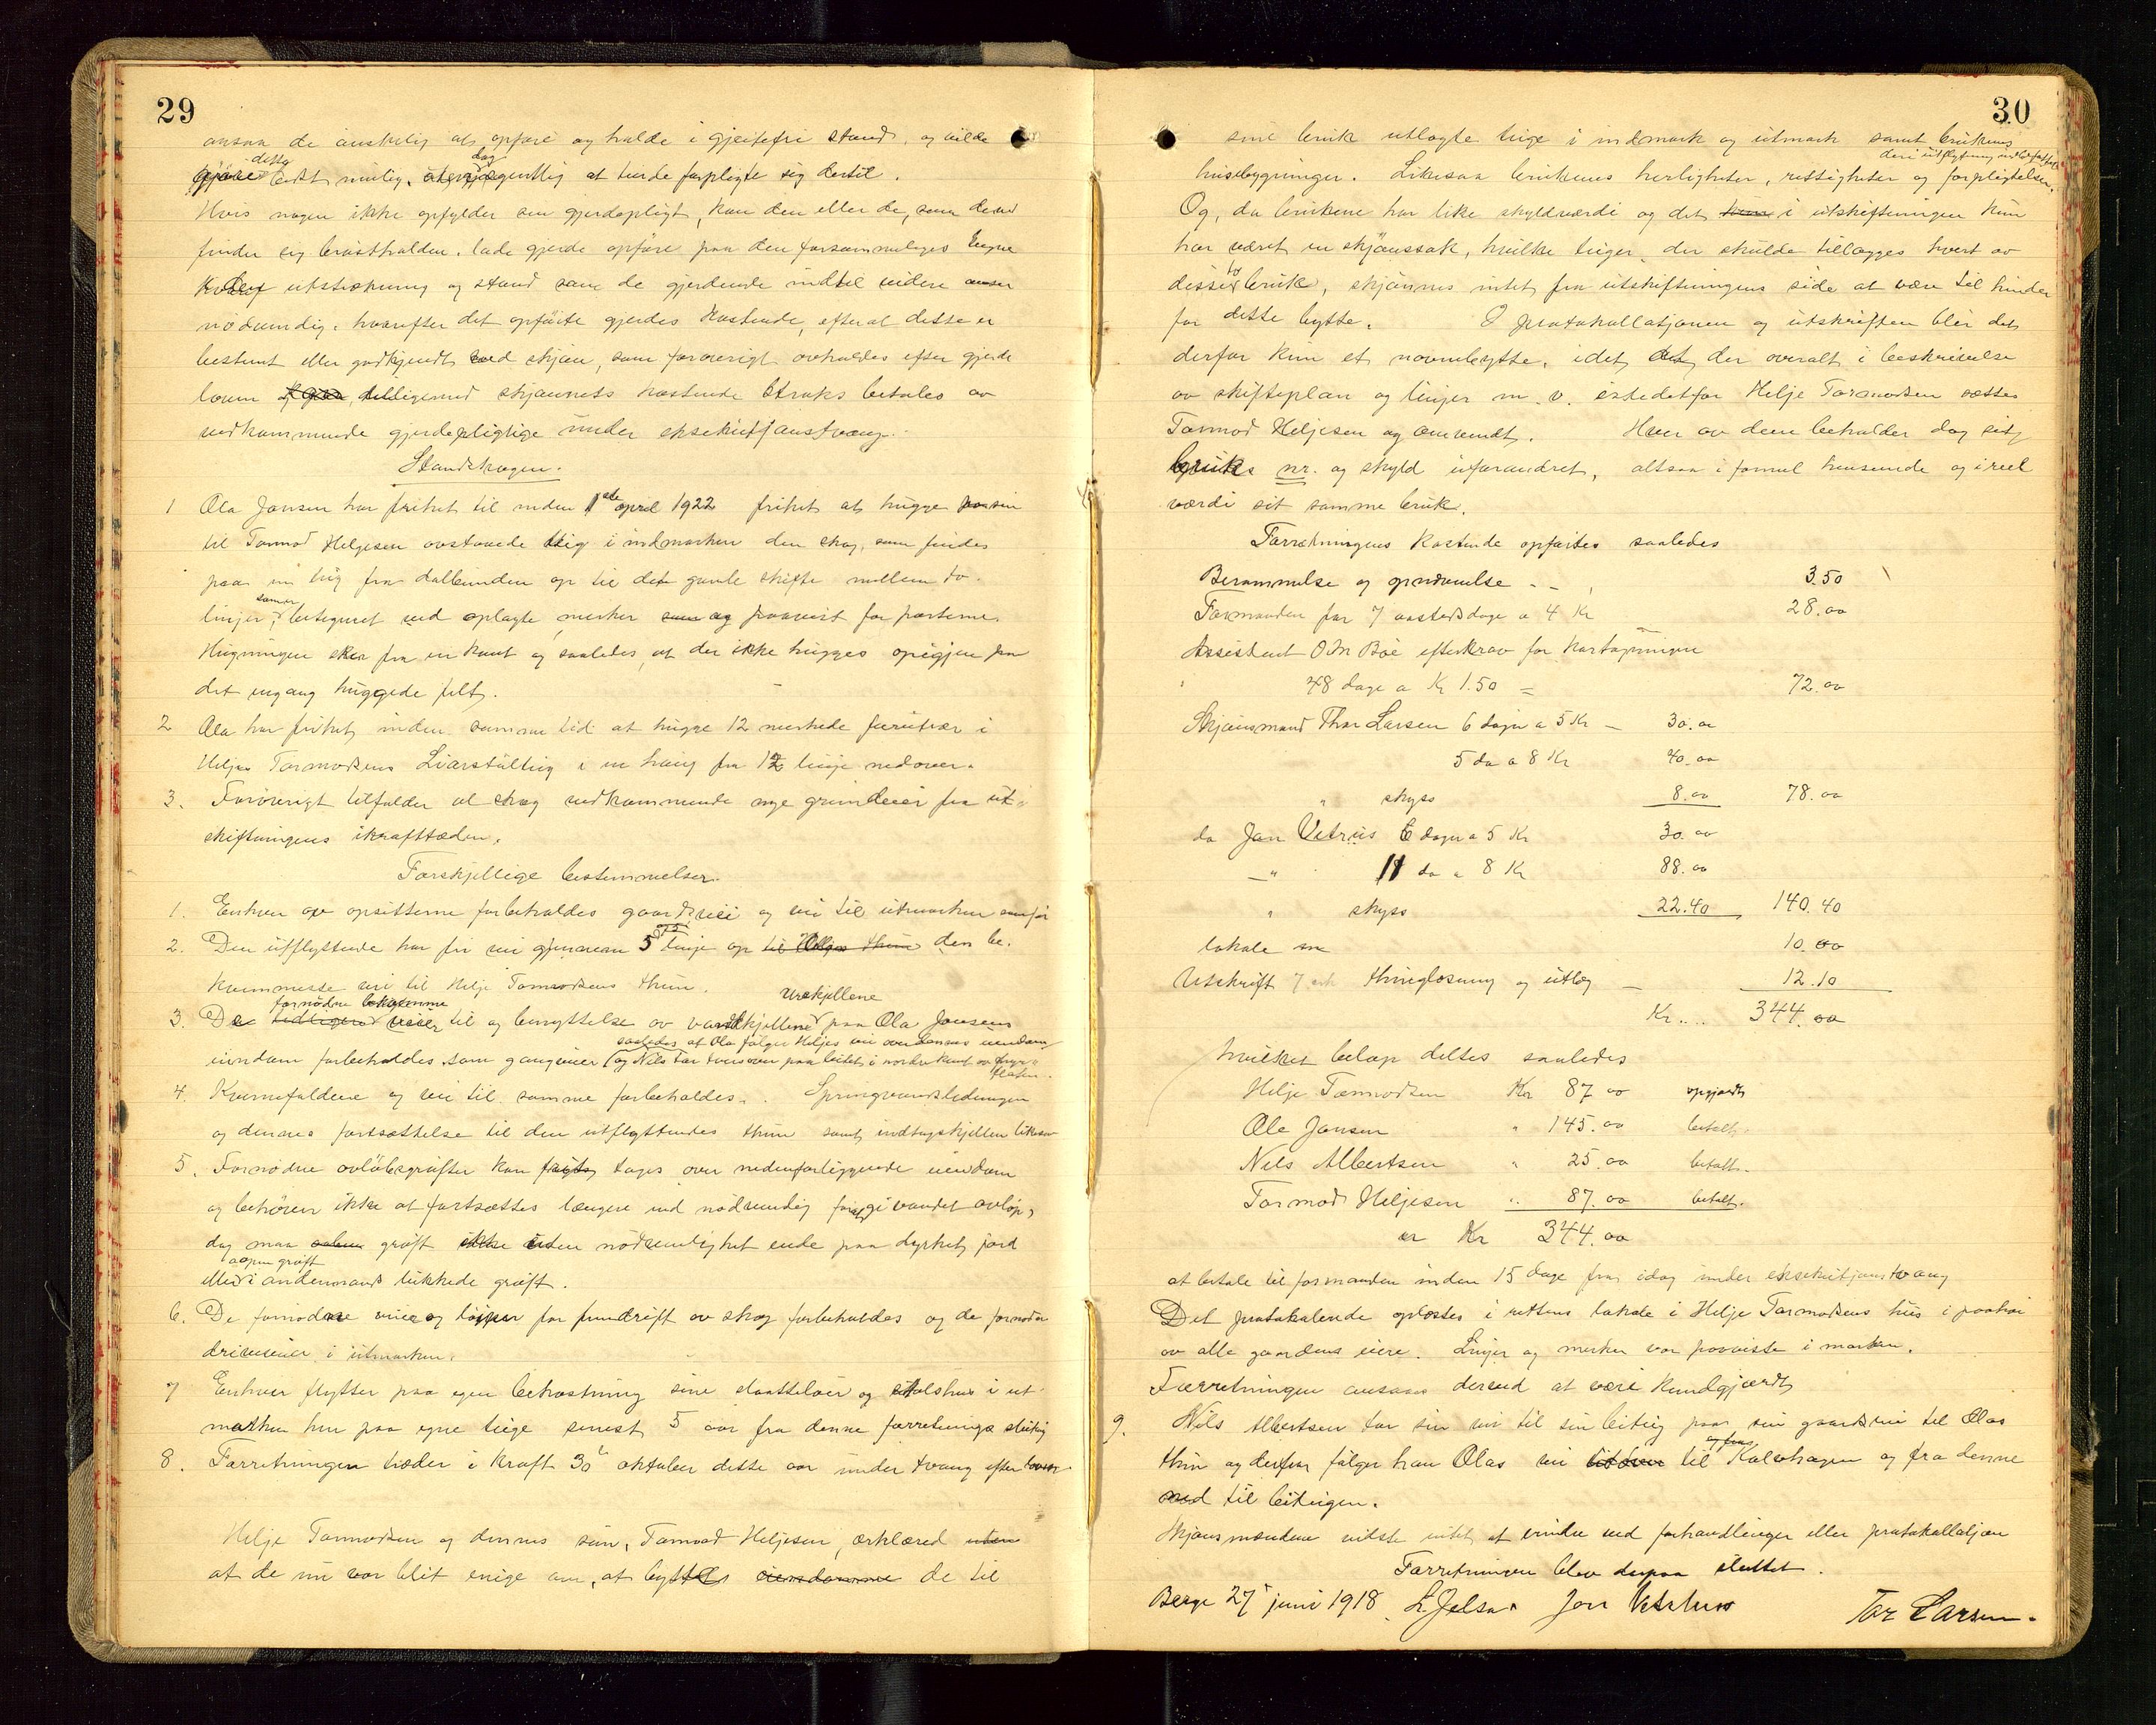 29
ansaa de ønskelig at opføre og holde i gjeitefri stand, og vilde
gjøre dette bedst mulig, dog at turde forpligte sig dertil.
Hvis nogen ikke opfylder sin gjerdepligt, kan den eller de, som derved
finder sig brøstholden, lade gjerde opføre paa den forsømmeliges Regne
utstrækning og stand som de gjerdende indtil videre anser
nødvendig, hvorefter det opførte gjerdes kostende, efterat dette er
bestemt eller godkjendt ved skjøn, som forøvrigt avholdes efter gjerde
loven tilligemed skjønnets kostende straks betales av
vedkommende gjerdepligtige under eksekutjonstvang.
Standskogen.
1 Ola Jonsen har frihet til inden 1ste april 1922 frihet at hugge paa sin
til Tormod Heljesen avstaaede teig i indmarken den skog, som findes
paa en teig fra dalbunden op til det gamle skifte mellem to
linjer, som er betegnet ved oplagte merker som og paavist for parterne.
Hugningen sker fra en kant og saaledes, at der ikke hugges opigjen paa
det engang huggede felt.
2 Ola har frihet inden samme tid at hugge 12 merkede furutrær i
Heljes Tormodsens Liarstølteig i en haug fra 12 linje nedover.
3. Forøvrigt tilfalder al skog vedkommende nye grundeier fra ut-
skiftningens ikrafttræden.
Forskjellige bestemmelser.
1. Enhver av opsitterne forbeholdes gaardsvei og vei til utmarken som før
2. Den utflyttende har fri vei gjennem 5 linje op til Heljes thun den be-
kvemmeste vei til Helje Tormodsens thun.
3. De fornødne bekvemme tidligere veier til og benyttelse av vandkjellene Urekjellene paa Ola Jonsens
eiendom forbeholdes som gangveier (saaledes at Ola følger Heljes vei over dennes eiendom
og Nils tar tversover paa beitet i nordre kant av
4. Kvernefaldene og vei til samme forbeholdes. Springvandsledningen
og dennes fortsættelse til den utflyttendes thun samt indtagskjellen likesaa
5. Fornødne avløbsgrøfter kan frit tages over nedenforliggende eiendom
og behøver ikke at fortsættes længere end nødvendig for at gi vandet avløp,
dog maa aapen grøft ikke uten nødvendighet ende paa dyrket jord
eller i andenmands lukkede grøft. aapen grøft
6. De fornødne veier og løiper for fremdrift av skog forbeholdes og de fornødne
driveveier i utmarken.
7 Enhver flytter paa egen bekostning sine slaatteløer og stølshus i ut-
marken hen paa egne teige senest 5 aar fra denne forretnings slutning
8. Forretningen træder i kraft 30 oktober dette aar under tvang efter loven
Helje Tormodsen og dennes søn, Tormod Heljesen, erklæred uten
at de nu var blit enige om, at bytte eiendomme de til
30
sine bruk utlagte teige i indmark og utmark samt brukenes
husebygninger. Likesaa brukenes herligheter, rettigheter og forpligtelser,
Og, da brukene har like skyldværdi og det i utskiftningen kun
har været en skjønssak, hvilke teiger, der skulde tillægges hvert av
disse to bruk, skjønnes intet fra utskiftningens side at være til hinder
for dette bytte. I protokollatjonen og utskriften blir det
derfor kun et navnebytte, idet der overalt i beskrivelse
av skifteplan og linjer m. v. istedetfor Helje Tormodsen sættes
Tormod Heljesen og omvendt. Hver av dem beholder dog sit
bruks nr. og skyld uforandret, altsaa i formel henseende og i reel
værdi sit samme bruk.
Forretningens kostende opførtes saaledes
Berammelse og - - 3.50
Formanden for 7 aastedsdage a 4 Kr 28.00
Assistent O M Bøe efterkrav for kartopmaaling
48 dage a Kr 1.50 = 72.00
Skjønsmand Thor Larsen 6 dage a 5 Kr — 30.00
5 do a 8 Kr 40.00
" skyss 8.00 78.00
do Jon Vetrus 6 dager a 5 Kr 30.00
—"— 11 do a 8 Kr 88.00
" skyss 22.40 140.40
lokale m 10.00
Utskrift 7 ark thinglæsning og utlæg — 12.10
Kr.... 344.00
hvilket beløp deltes saaledes
Helje Tormodsen Kr 87.00 opgjordt
Ole Jonsen " 145.00 betalt.
Nils Albertsen " 25.00 betalt.
Tormod Heljesen " 87.00 betalt.
er Kr 344.00
at betale til formanden inden 15 dage fra idag under eksekutjonstvang
Det protokolerede oplæstes i rettens lokale i Helje Tormodsens hus i paahør
av alle gaardens eiere. Linjer og merker var paaviste i marken.
Forretningen ansaaes derved at være kundgjordt
9. Nils Albertsen tar sin vei til sin beiteig paa sin gaardsvei til Olas
thun og derfra følger han Olas vei til og fra Kalvhagen og fra denne
ned til beiteigen.
Skjønsmændene vidste intet at erindre ved forhandlinger eller protokollatjon
Forretningen blev derpaa sluttet.
Berge 27 juni 1918 L. Jelsa Jon Vetrhus Tor Larsen.